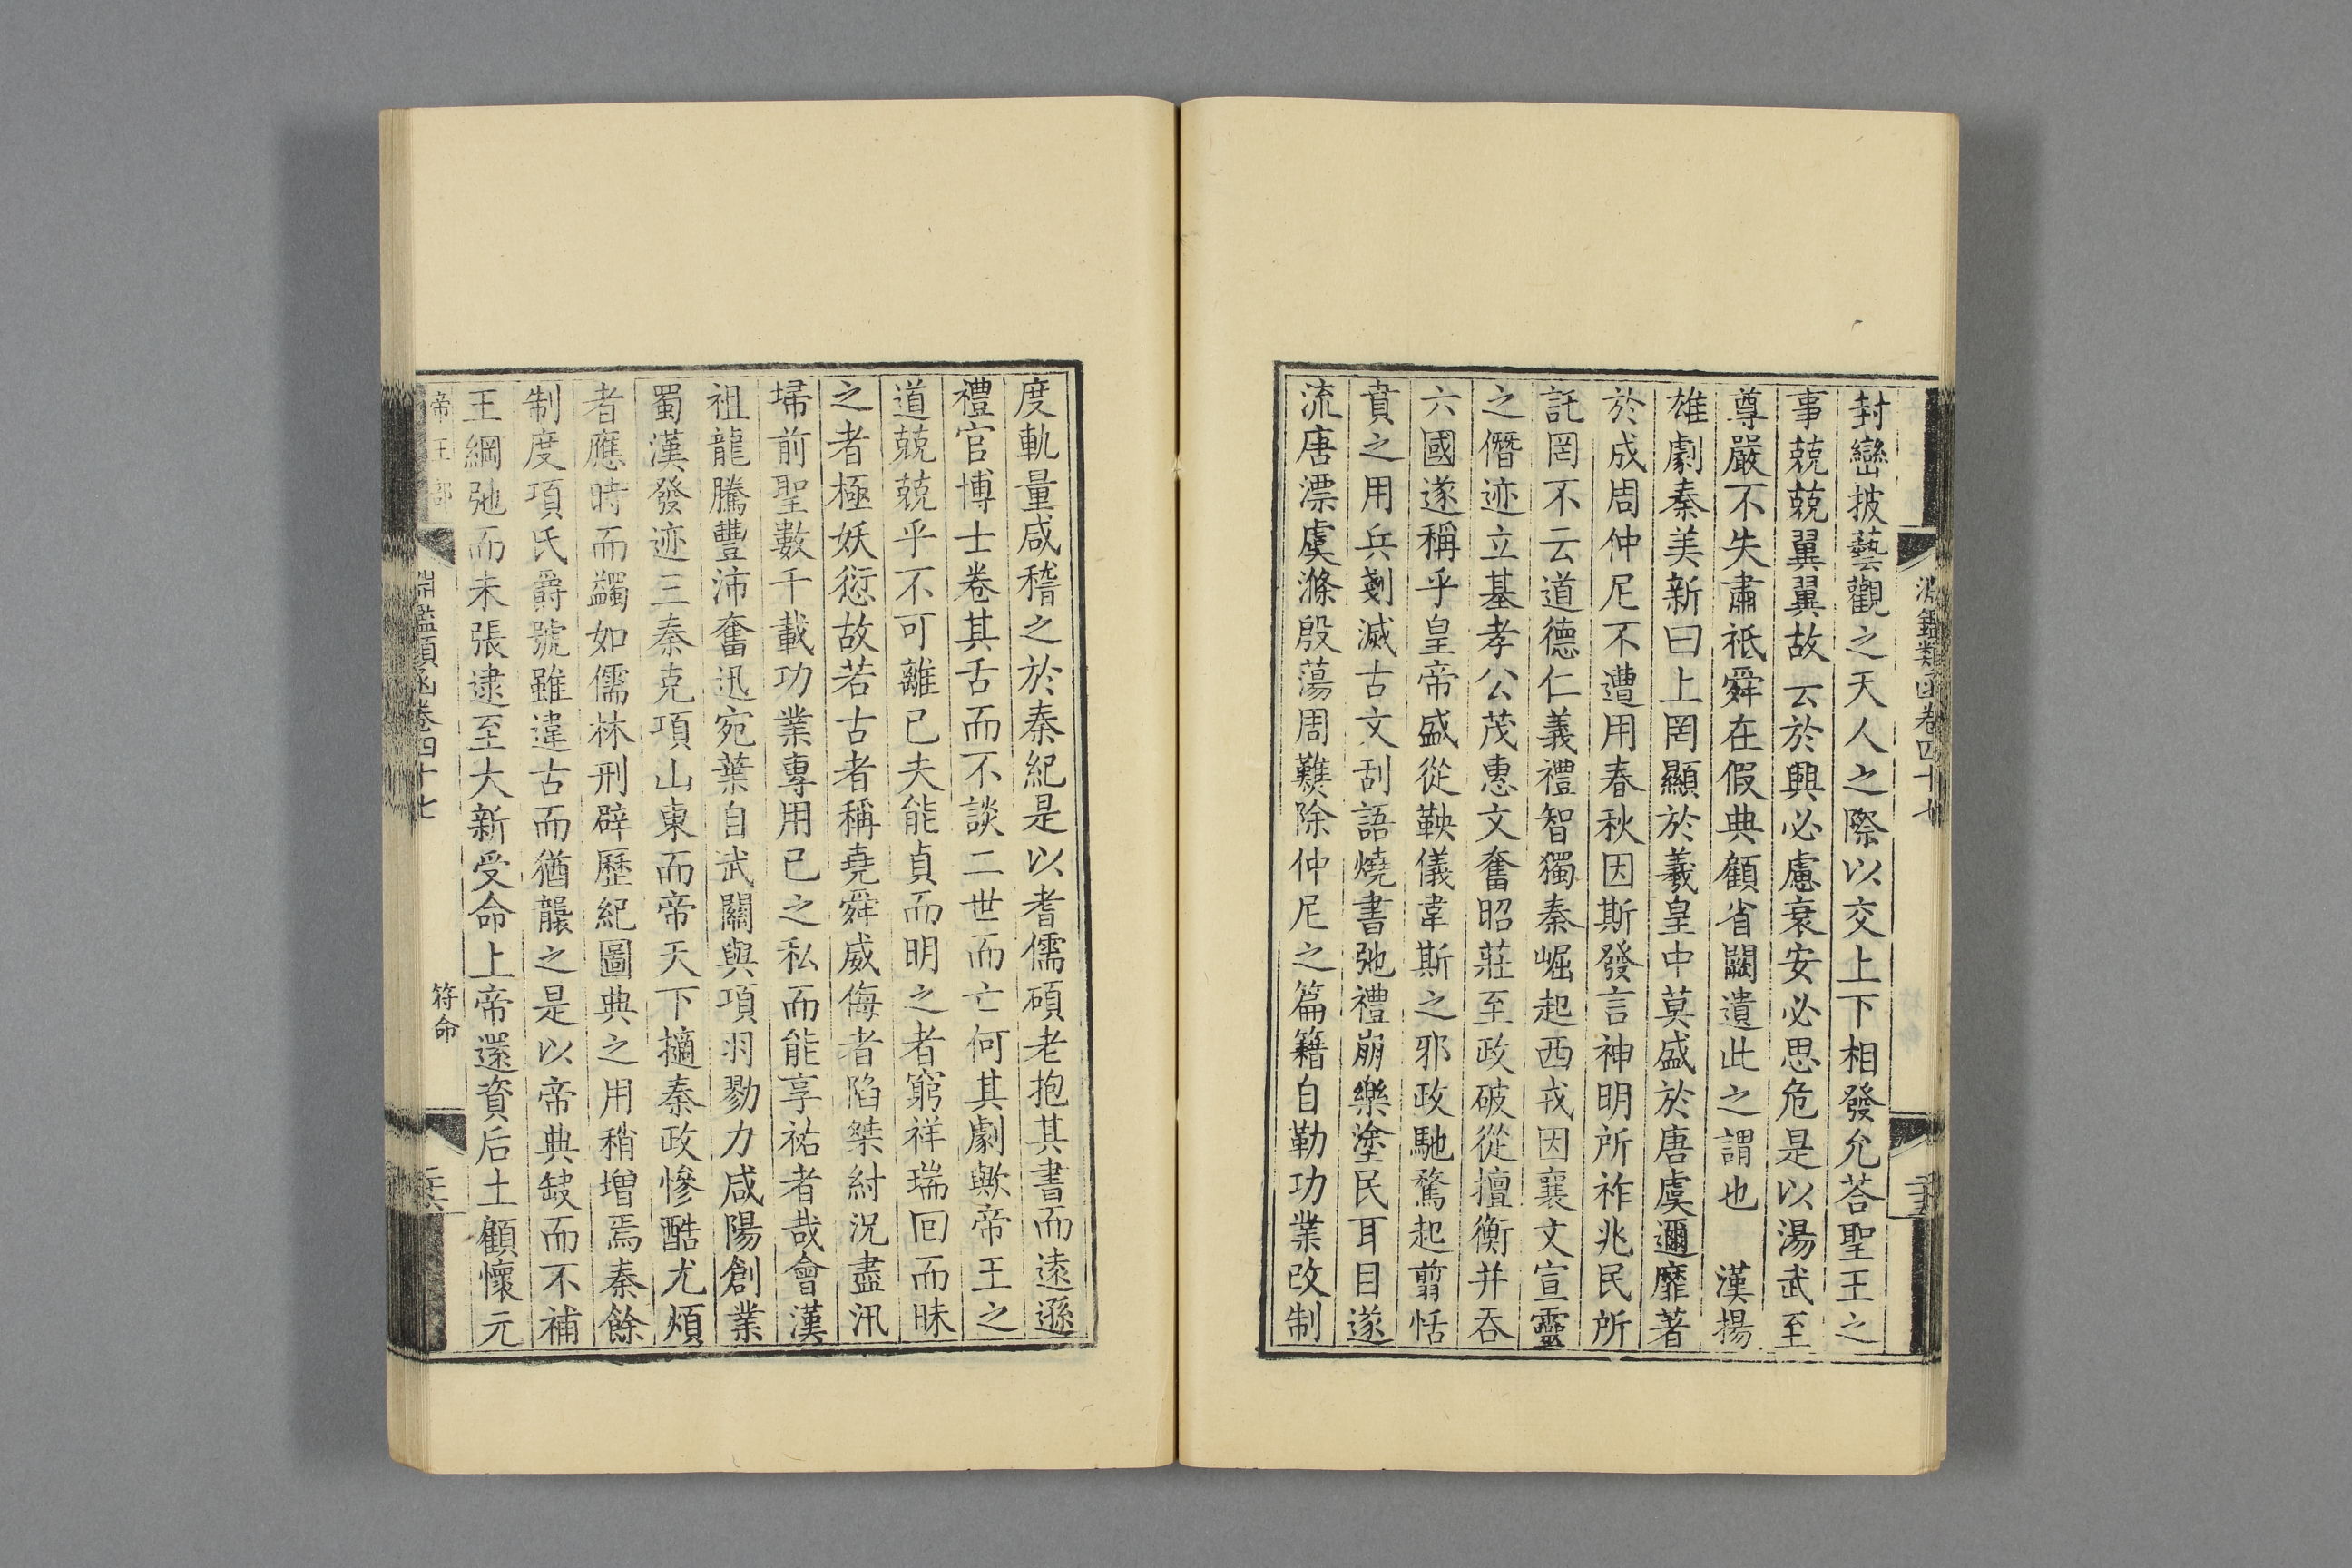 淵鑑類函卷四十七
二十五
封巒披藝觀之天人之際以交上下相發允荅聖王之
事兢兢翼翼故云於興必慮衰安必思危是以湯武至
尊嚴不失肅祇舜在假典顧省闕遺此之謂也　漢揚
雄劇秦美新曰上罔顯於羲皇中莫盛於唐虞邇靡著
於成周仲尼不遭用春秋因斯發言神明所祚兆民所
託罔不云道德仁義禮智獨秦崛起西戎因襄文宣靈
之僭迹立基孝公茂惠文奮昭莊至政破從擅衡并吞
六國遂稱乎皇帝盛從鞅儀韋斯之邪政馳騖起翦恬
賁之用兵剗滅古文刮語燒書弛禮崩樂塗民耳目遂
流唐漂虞滌殷蕩周難除仲尼之篇籍自勒功業改制
度軌量咸稽之於秦紀是以耆儒碩老抱其書而遠遜
禮官博士卷其舌而不談二世而亡何其劇歟帝王之
道兢兢乎不可離已夫能貞而明之者窮祥瑞回而昧
之者極妖愆故若古者稱堯舜威侮者陷桀紂況盡汛
埽前聖數千載功業專用已之私而能享祐者哉會漢
祖龍騰豐沛奮迅宛葉自武關與項羽勠力咸陽創業
蜀漢發迹三秦克項山東而帝天下擿秦政慘酷尤煩
者應時而蠲如儒林刑辟歷紀圖典之用稍增焉秦餘
制度項氏爵號雖違古而猶襲之是以帝典缺而不補
王綱弛而未張逮至大新受命上帝還資后土顧懷元
帝王部
淵鑑類函卷四十七
符命
二十六